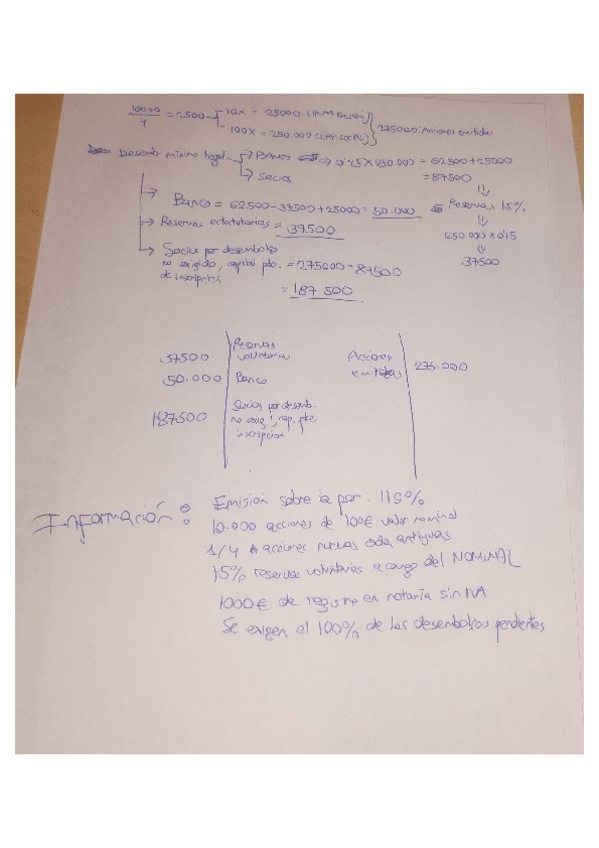 10000/4 = 2500 10x = 25000 (PRIM EMISION)
100x = 250.000 (CAP. SOCIAL) 275000 Acciones emitidas
Desemb mínimo legal → BANCO ⇒ 0'25 x 250.000 = 62500 + 25000
→ Socios = 87500
→ Banco = 62500 - 37500 + 25000 = 50.000 Reservas 15%
→ Reservas estatutarias = 37500 250.000 x 0'15
→ Socios por desembolso 37500
no exigido, capital pte. = 275000 - 87500
de inscripción
= 187 500
37500 Reservas voluntarias Acciones emitidas 275.000
50.000 Banco
187.500 Socios por desemb.
no exig., cap. pte
inscripción
Información: Emisión sobre la par: 110%
10.000 acciones de 100€ valor nominal
1/4 acciones nuevas cada antiguas
15% reservas voluntarias a cargo del NOMINAL
1000€ de registro en notaría sin IVA
Se exigen el 100% de los desembolsos pendientes